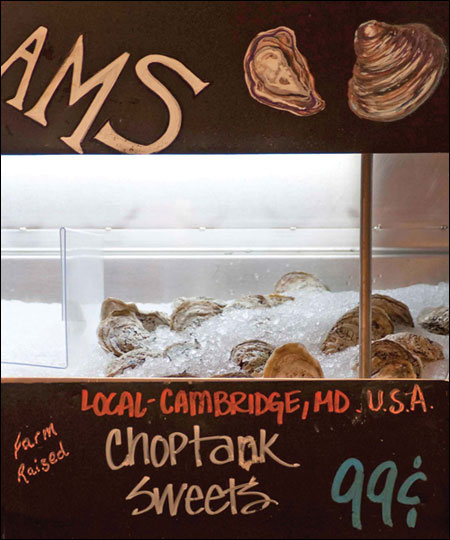 AMS
LOCAL-CAMBRIDGE, MD. U.S.A.
Farm
Raised
Choptank
Sweets
99¢